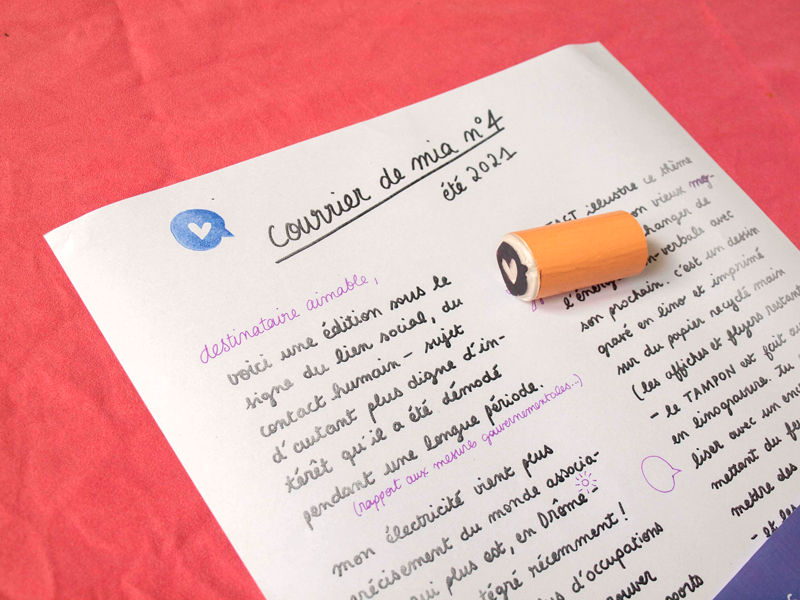 courrier de mia n°4
été 2021
destinataire aimable,
voici une édition sous le
signe du lien social, du
contact humain – sujet
d'autant plus digne d'in-
térêt qu'il a été démodé
pendant une longue période.
(rapport aux mesures gouvernementales...)
mon électricité vient plus
précisement du monde associa-
qui plus est, en Drôme-
tégré récemment !
d'occupations
illustre ce thème
vieux
changer de
l'énerg verbale avec
son prochain. c'est un dessin
gravé en lino et imprimé
sur du papier recyclé main
(les affiches et flyers restant
- le TAMPON est fait au
en linogravure. Tu
liser avec un enc
mettant du fe
mettre des
- et les